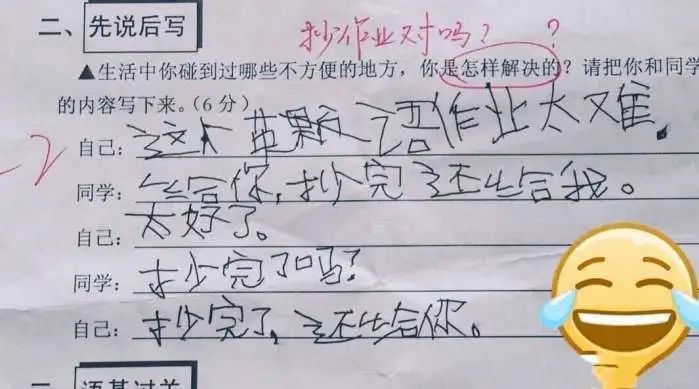 抄作业对吗? ?
二、先说后写
▲生活中你碰到过哪些不方便的地方,你是怎样解决的?请把你和同学
的内容写下来。(6分)
-2
自己:这个 语作业太难.
同学: 给你,抄完了还给我。
自己:太好了。
同学:抄完了吗?
自己:抄完了,还给你。
语基过关